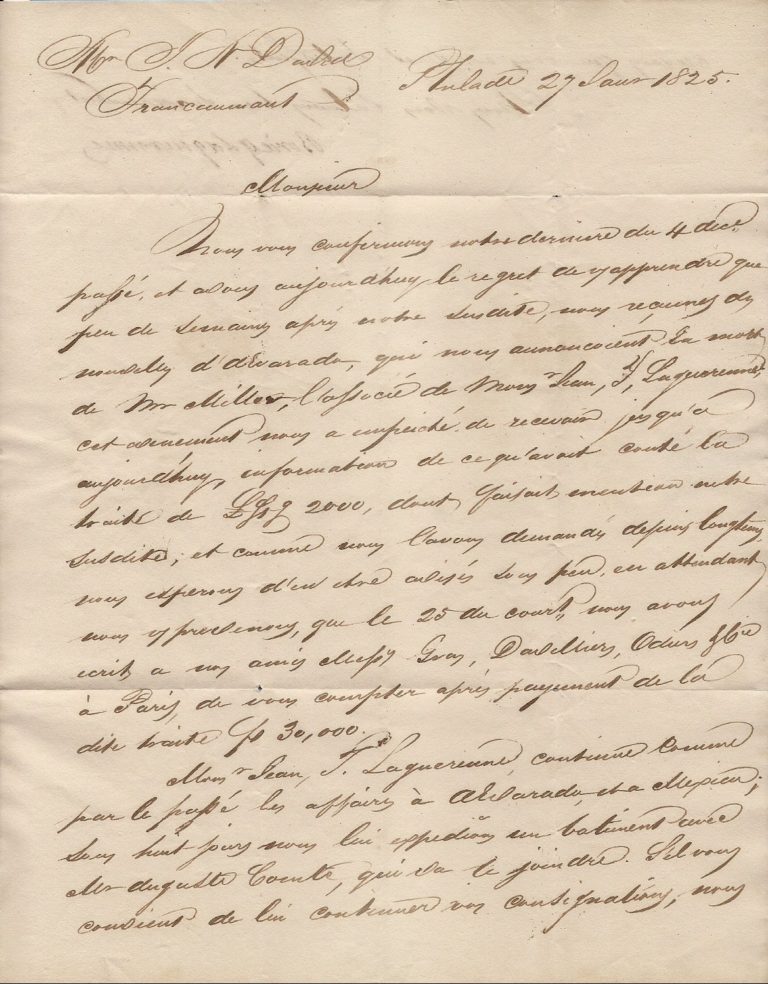 Mr J. N. 
Philade 27 Janr 1825.
Francaumont
Monsieur
Nous vous confirmons notre derniere du 4 dece.
passé, et avons aujourdhuy le regret de vs apprendre que
peu de semaines après notre susdite, nous reçumes des
nouvelles d'Alvarado, qui nous annoncoient la mort
de Mr Miller, l'associé de Monsr Jean, F, Laguerenne,
cet evenement nous a empeiché de recevoir jusqu'a
aujourdhuy, information de ce qu'avoit couté la
traite de 2000, dont faisait mention notre
susdite; et comme nous l'avons demandés depuis longtems,
nous esperons d'en etre avisés sous peu, en attendant
nous vs prevenons, que le 25 du court, nous avons
ecrit a nos amis Messrs Gros, Davilliers, Odier & Cie
à Paris, de vous compter après payement de la
dite traite fs 30,000.
Monsr Jean, F. Laguerenne continue comme
par le passé les affaires à Alvarado, et a Mexico;
sous huit jours nous lui expedions un batiment avec
Mr Auguste Comte, qui va le joindre. S'il vous
convient de lui continuer vos consignations, nous